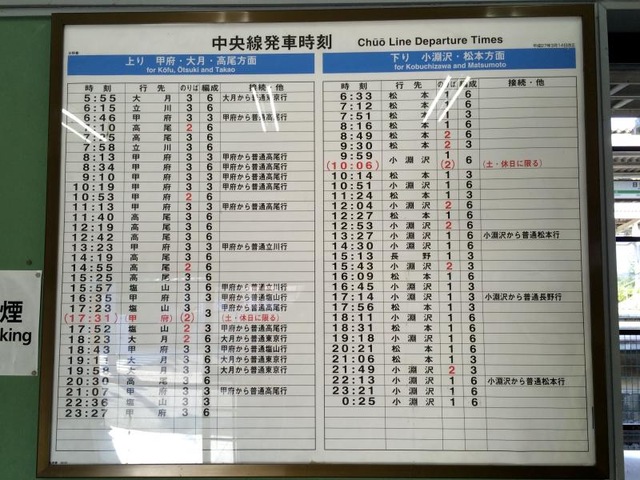 中央線発車時刻 Chūō Line Departure Times
上り 甲府・大月・高尾方面
for Kōfu, Ōtsuki and Takao
時刻 行先 のりば 編成 接続・他
5:55 大月 3 6 大月から普通東京行
6:15 立川 3 6
6:46 甲府 3 3 甲府から普通高尾行
7:10 高尾 2 6
高尾 3 6
7:58 立川 3 6
8:13 甲府 3 3 甲府から普通高尾行
8:34 甲府 3 3 甲府から普通高尾行
9:10 甲府 3 3 甲府から普通高尾行
10:19 甲府 3 3 甲府から普通高尾行
10:53 甲府 2 6
11:13 甲府 3 3 甲府から普通高尾行
11:40 高尾 3 6
12:19 高尾 3 6
12:42 高尾 3 6
13:23 甲府 3 3 甲府から普通立川行
14:19 高尾 3 6
14:55 高尾 2 6
15:25 高尾 3 6
15:57 塩山 3 6 甲府から普通立川行
16:35 甲府 3 3 甲府から普通塩山行
17:23 塩山 3 3 甲府から普通高尾行
(17:31) (甲府) (2) (土・休日に限る)
17:52 塩山 2 3 甲府から普通高尾行
18:23 大月 2 6 大月から普通東京行
18:43 甲府 3 3 甲府から普通塩山行
大月 3 6 大月から普通東京行
19:58 大月 3 3 大月から普通東京行
20:30 高尾 3 6
21:07 甲府 3 3 甲府から普通高尾行
22:36 塩山 3 3
23:27 甲府 3 6
下り 小淵沢・松本方面
for Kobuchizawa and Matsumoto
時刻 行先 のりば 編成 接続・他
6:33 松本 1 6
7:12 松本 1 6
7:51 松本 1 3
8:16 松本 1 6
8:49 松本 2 6
9:30 松本 2 3
9:59 小淵沢 1 6
(10:06) (2) (土・休日に限る)
10:14 松本 1 3
10:51 小淵沢 1 6
11:24 松本 1 3
12:04 小淵沢 2 6
12:27 松本 1 6
12:53 小淵沢 2 6
13:27 小淵沢 1 6 小淵沢から普通松本行
14:30 小淵沢 1 6
15:13 長野 1 3
15:43 小淵沢 2 3
16:09 松本 1 6
16:45 小淵沢 1 6
17:14 小淵沢 1 3 小淵沢から普通長野行
17:56 松本 1 3
18:11 小淵沢 1 6
18:31 松本 1 6
19:18 小淵沢 1 6
20:21 松本 1 6
21:06 松本 1 3
21:49 小淵沢 2 3
22:13 小淵沢 1 6 小淵沢から普通松本行
23:21 小淵沢 1 6
0:25 小淵沢 1 6
煙
king